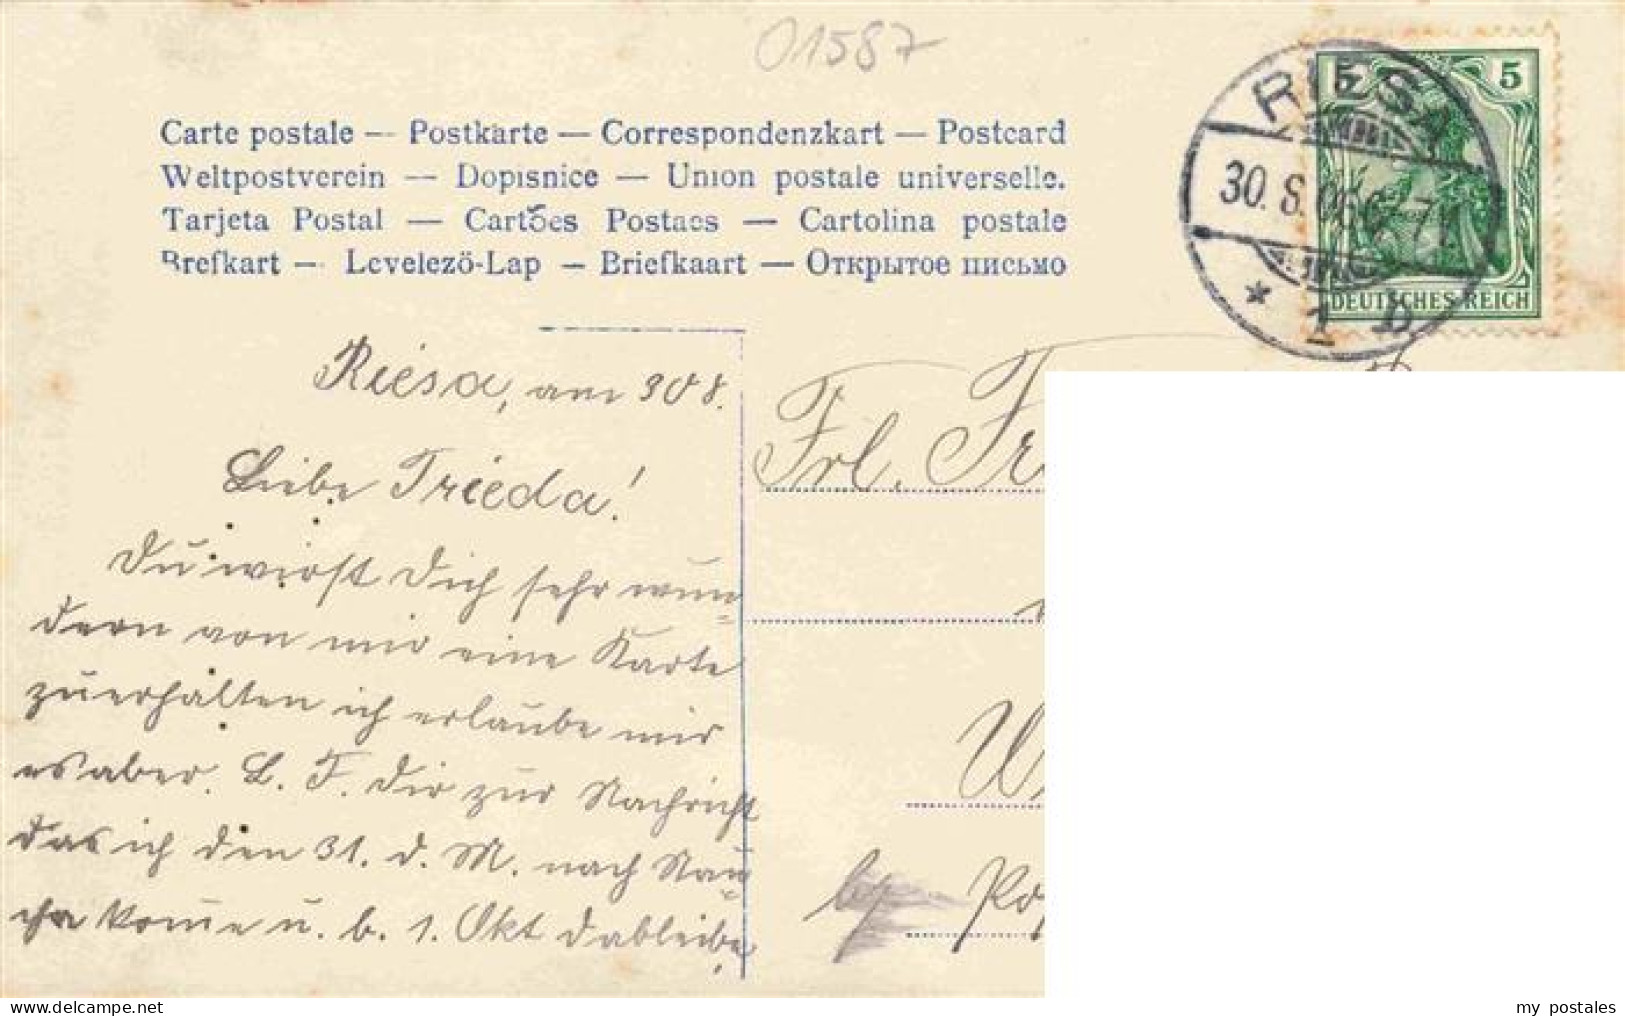 01587
Carte postale — Postkarte — Correspondenzkart — Postcard
Weltpostverein — Dopisnice — Union postale universelle.
Tarjeta Postal — Cartões Postaes — Cartolina postale
Brefkart — Levelezö-Lap — Briefkaart — Открытое письмо
RIESA
30.8.06 6-7
* 1 b
5 5
DEUTSCHES REICH
Riesa, am 30 8.
Liebe Frieda!
Du wirst Dich sehr wun-
dern von mir eine Karte
zuerhalten ich erlaube mir
es aber. L. F. Dir zur Nachricht
das ich den 31. d. M. nach Nau-
kome u. b. 1. Okt dableibe
Frl. Fr
W
Po
delcampe.net
my postales